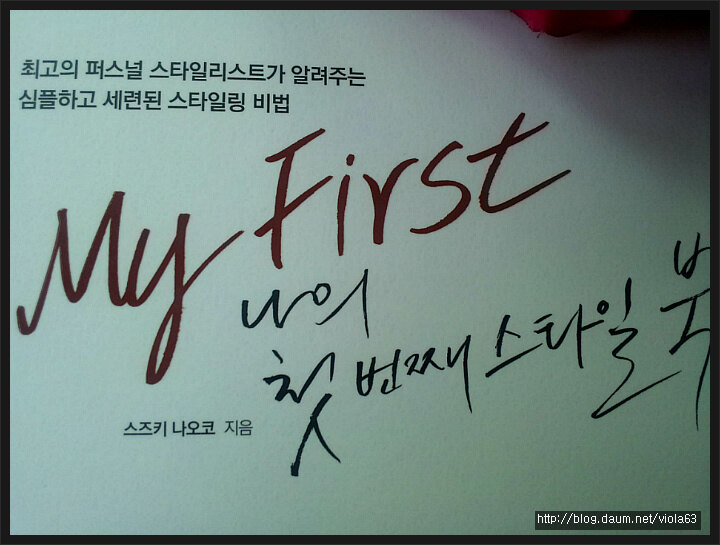 최고의 퍼스널 스타일리스트가 알려주는
심플하고 세련된 스타일링 비법
My First
나의
첫 번째 스타일 북
스즈키 나오코 지음
http://blog.daum.net/viola63